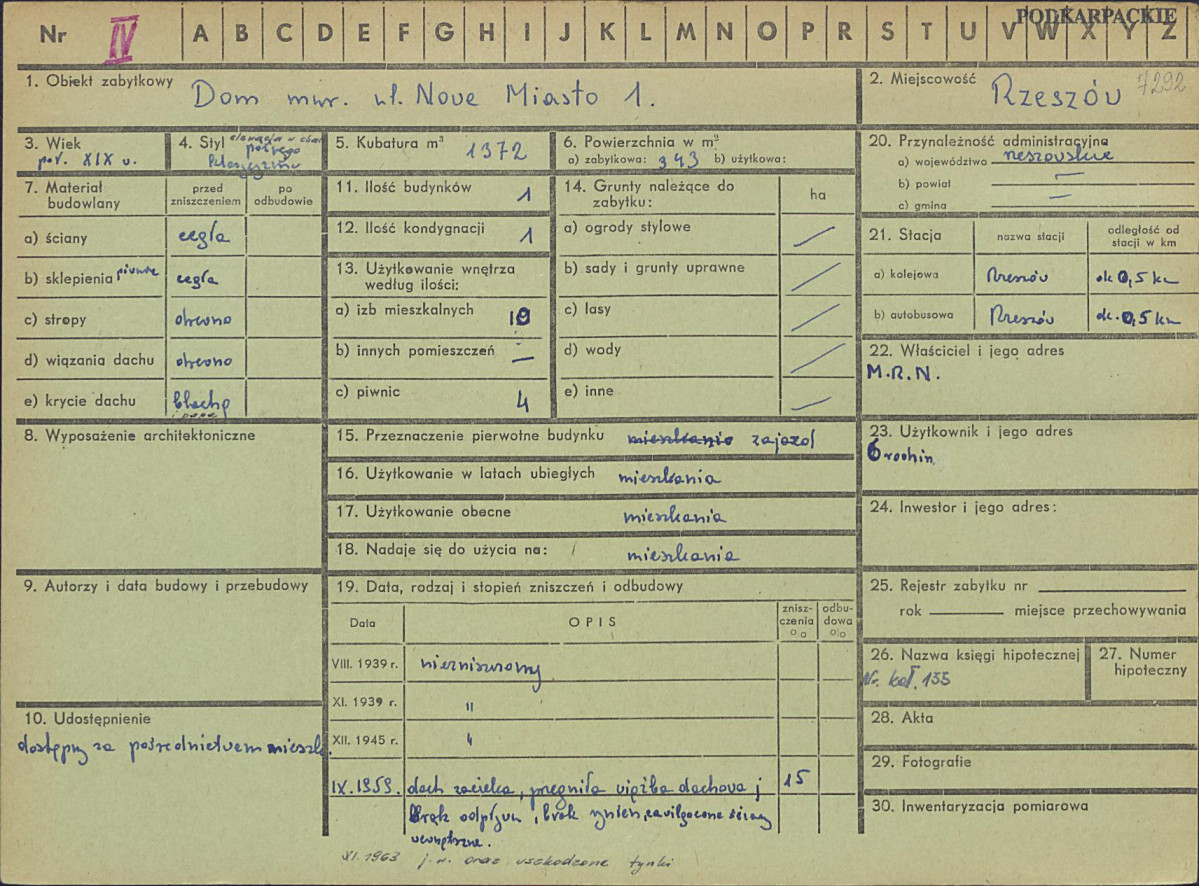 Nr IV A B C D E F G H I J K L M N O P R S T U V W X Y Z
PODKARPACKIE
1. Obiekt zabytkowy Dom mur. ul. Nowe Miasto 1.
2. Miejscowość Rzeszów 7292
3. Wiek
poł. XIX w.
4. Styl elewacja w
późnego
klasycyzmu
5. Kubatura m³ 1372
6. Powierzchnia w m²
a) zabytkowa: 343 b) użytkowa:
20. Przynależność administracyjna
a) województwo rzeszowskie
b) powiat —
c) gmina —
7. Materiał budowlany
przed zniszczeniem
po odbudowie
a) ściany cegła
b) sklepienia piwnic cegła
c) stropy drewno
d) wiązania dachu drewno
e) krycie dachu blacha
papa
11. Ilość budynków 1
12. Ilość kondygnacji 1
13. Użytkowanie wnętrza
według ilości:
a) izb mieszkalnych 10
b) innych pomieszczeń —
c) piwnic 4
14. Grunty należące do
zabytku:
ha
a) ogrody stylowe /
b) sady i grunty uprawne /
c) lasy /
d) wody /
e) inne /
21. Stacja
nazwa stacji
odległość od
stacji w km
a) kolejowa Rzeszów ok 0,5 km
b) autobusowa Rzeszów ok. 0,5 km
22. Właściciel i jego adres
M.R.N.
8. Wyposażenie architektoniczne
15. Przeznaczenie pierwotne budynku mieszkanie zajazd
16. Użytkowanie w latach ubiegłych mieszkania
17. Użytkowanie obecne mieszkania
18. Nadaje się do użycia na: mieszkania
23. Użytkownik i jego adres
6 rodzin
24. Inwestor i jego adres:
9. Autorzy i data budowy i przebudowy
19. Data, rodzaj i stopień zniszczeń i odbudowy
Data
OPIS
znisz-
czenia
%
odbu-
dowa
%
VIII. 1939 r. niezniszczony
XI. 1939 r. "
XII. 1945 r. "
IX.1959. dach zacieka, przegniła więźba dachowa 15
brak odpływu, brak rynien, zawilgocone ściany
wewnętrzne.
XI.1963 j.w. oraz uszkodzone tynki
25. Rejestr zabytku nr
rok miejsce przechowywania
26. Nazwa księgi hipotecznej
Nr. kat. 155
27. Numer
hipoteczny
10. Udostępnienie
dostępny za pośrednictwem mieszk.
28. Akta
29. Fotografie
30. Inwentaryzacja pomiarowa